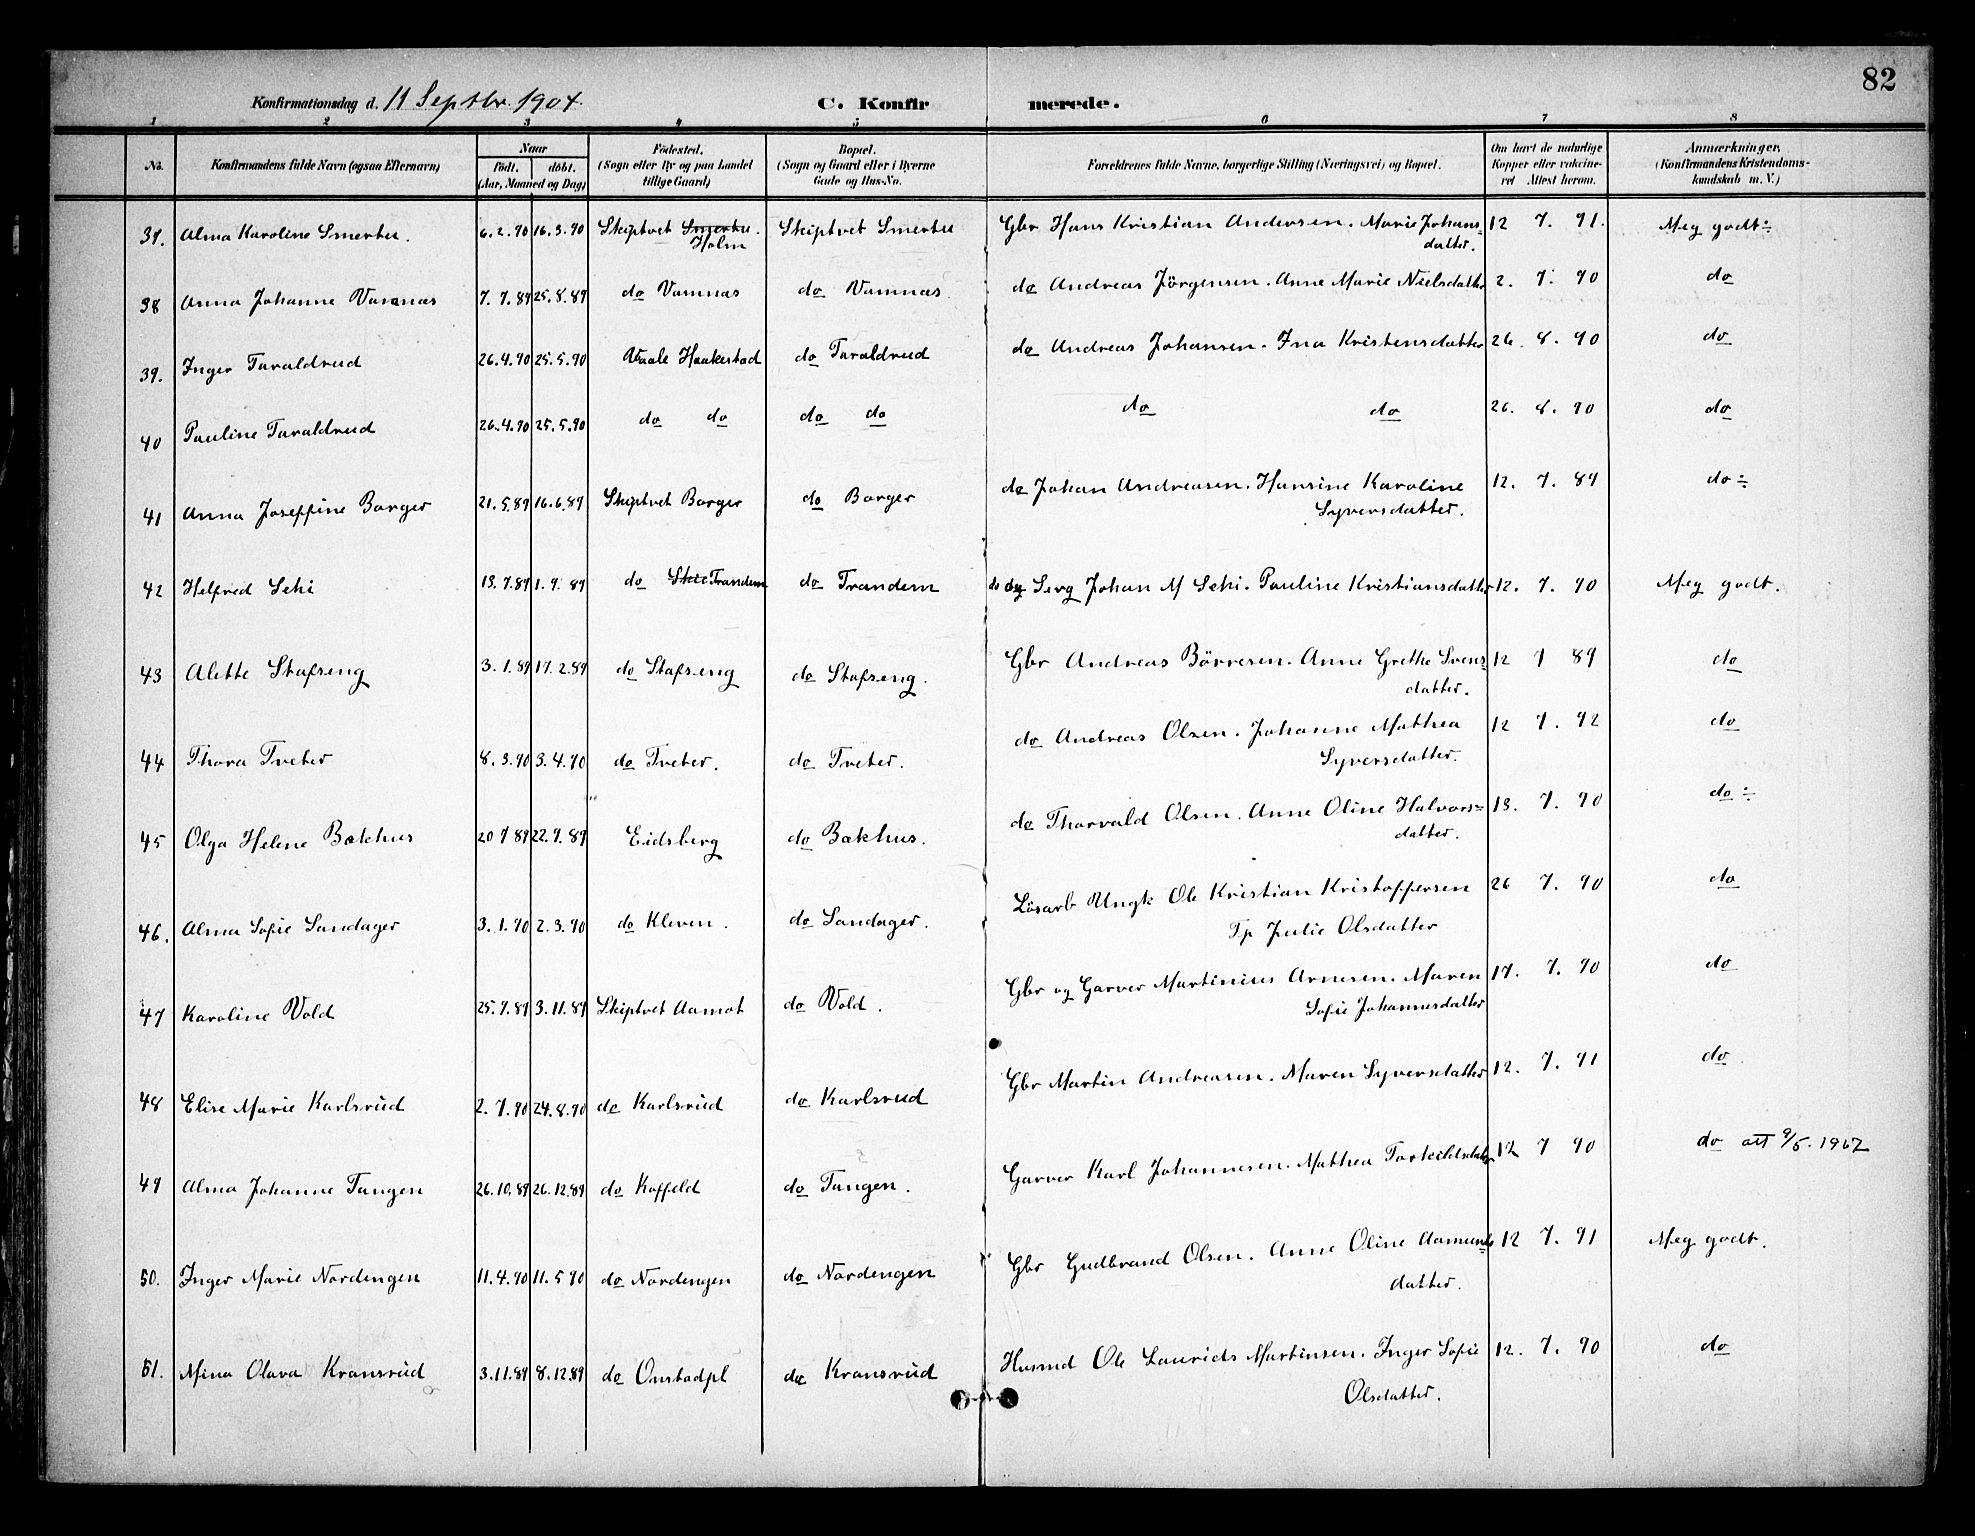 82
Konfirmationsdag d. 11 Septbr. 1904. C. Konfirmerede.
1 2 3 4 5 6 7 8
No. Konfirmandens fulde Navn (ogsaa Efternavn) Naar födt. döbt. (Aar, Maaned og Dag) Födested. (Sogn eller By og paa Landet tillige Gaard) Bopæl. (Sogn og Gaard eller i Byerne Gade og Hus-No. Forældrenes fulde Navne, borgerlige Stilling (Næringsvei) og Bopæl. Om havt de naturlige Kopper eller vakcineret Attest herom. Anmærkninger. (Konfirmandens Kristendomskundskab m. V.)
37. Alma Karoline Smertu. 6.2.90 16.3.90 Skiptvet Smertu. Holm Skiptvet Smertu Gbr Hans Kristian Andersen. Marie Johansdatter. 12 7. 91. Meg godt÷
38 Anna Johanne Vamnæs 7.7.89 25.8.89 do Vamnæs do Vamnæs. do Andreas Jörgensen. Anne Marie Nielsdatter 2. 7. 90 do
39. Inger Taraldrud 26.4.90 25.5.90 Vaale Haakestad do Taraldrud do Andreas Johansen. Ina Kristensdatter 26. 8. 90 do
40 Pauline Taraldrud 26.4.90 25.5.90 do do do do do do 26. 8. 90 do
41 Anna Joseffine Borger 21.5.89 16.6.89 Skiptvet Borger do Borger do Johan Andreasen. Hansine Karoline Syversdatter. 12. 7. 89 do÷
42 Helfred Sehi 13.7.89 1.9.89 do Trandem do Trandem do og Serg Johan M Sehi. Pauline Kristiansdatter 12. 7. 90 Meg godt.
43 Alette Stafseng 3.1.89 17.2.89 do Stafseng do Stafseng. Gbr Andreas Börresen. Anne Grethe Svensdatter. 12 7 89 do
44 Thora Tveter 8.3.90 3.4.90 do Tveter. do Tveter. do Andreas Olsen. Johanne Mathea Syversdatter. 12 7. 92 do
45 Olga Helene Bakhus 20 7 89 22.9.89 Eidsberg do Bakhus. do Thorvald Olsen. Anne Oline Halvorsdatter. 13. 7. 90 do÷
46. Alma Sofie Sandager 3.1.90 2.3.90 do Kleven. do Sandager. Lösarb Ungk Ole Kristian Kristoffersen Tp Julie Olsdatter 26 7. 90 do
47 Karoline Vold 25.9.89 3.11.89 Skiptvet Aamot do Vold. Gbr og Garver Martinius Arnesen. Maren Sofie Johannesdatter 17. 7. 90 do
48 Elise Marie Karlsrud 2.7.90 24.8.90 do Karlsrud do Karlsrud Gbr Martin Andreasen. Maren Syversdatter 12. 7. 91 do
49 Alma Johanne Tangen 26.10.89 26.12.89 do Koffeld do Tangen. Garver Karl Johannesen. Mathea Torkildsdatter 12 7 90 do att 9/5. 1967
50. Inger Marie Nordengen 11.4.90 11.5.90 do Nordengen do Nordengen Gbr Gudbrand Olsen. Anne Oline Aamundsdatter. 12 7. 91 Meg godt.
51. Mina Olava Kransrud 3.11.89 8.12.89 do Onstadpl do Kransrud Husmd Ole Laurids Martinsen. Inger Sofie Olsdatter. 12. 7. 90 do